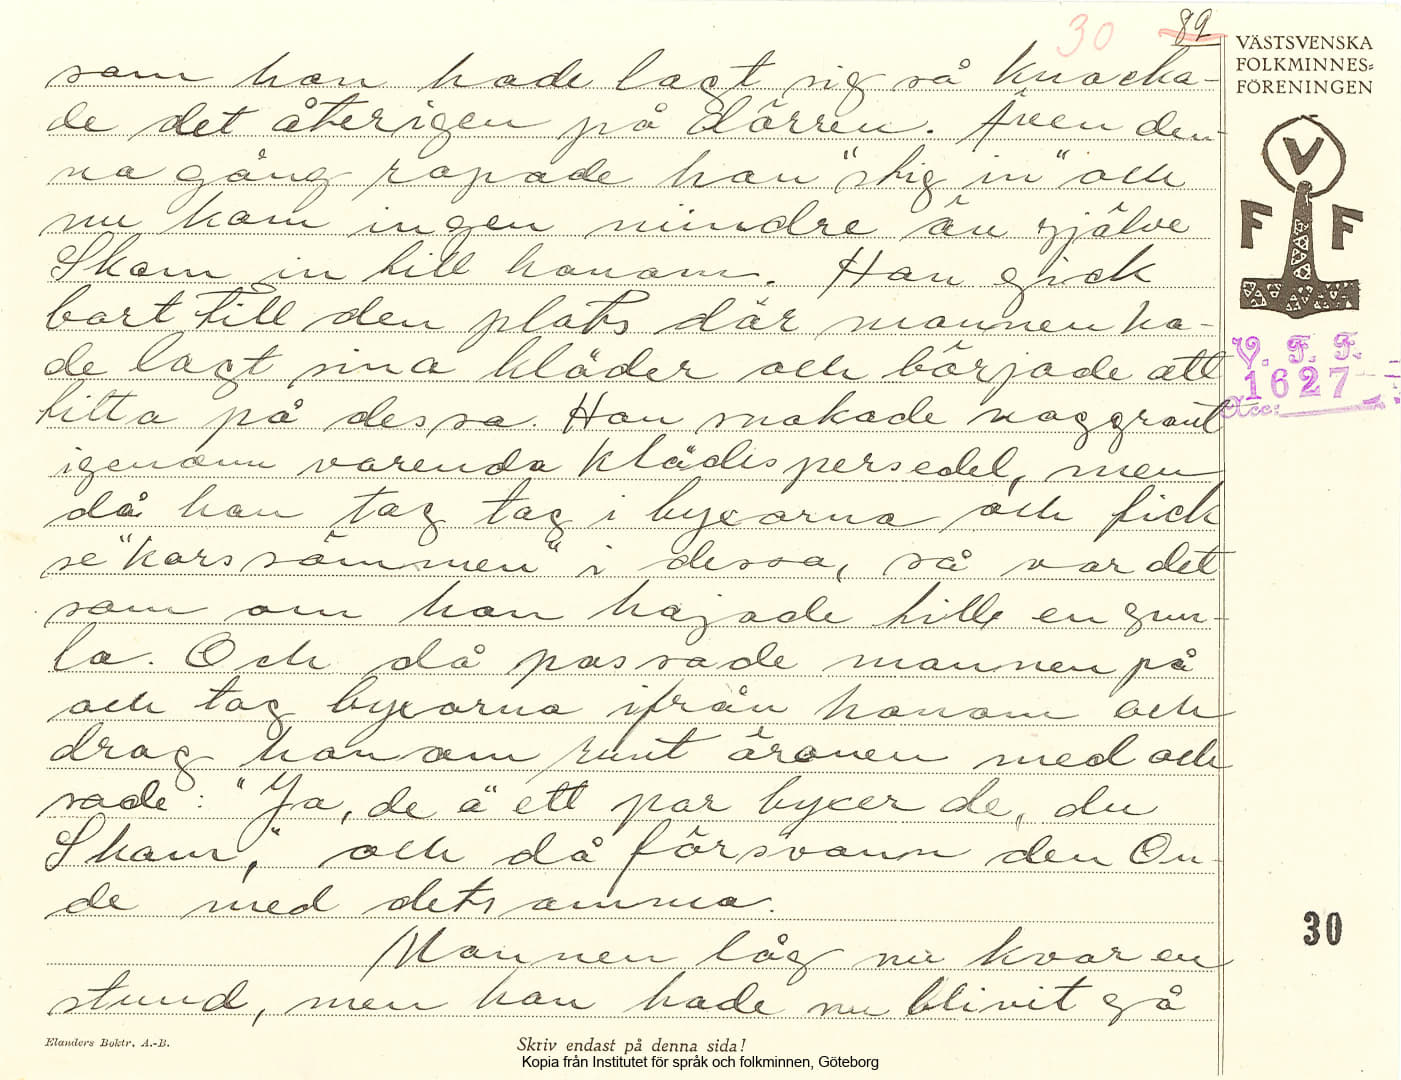 30 82
VÄSTSVENSKA
FOLKMINNES=
FÖRENINGEN
V
F F
V. F. F.
1627
Acc:
som han hade lagt sig så knacka-
de det återigen på dörren. Även den-
na gång ropade han "stig in" och
nu kom ingen mindre än själve
Skam in till honom. Han gick
bort till den plats där mannen ha-
de lagt sina kläder och började att
titta på dessa. Han snokade noggrant
igenom varenda klädispersedel, men
då han tog tag i byxorna och fick
se "korssömmen" i dessa, så var det
som om han hajade till en gun-
la. Och då passade mannen på
och tog byxorna ifrån honom och
drog honom runt öronen med och
sade: "Ja, de ä ett par byxer de, du
Skam," och då försvann den On-
de med detsamma.
Mannen låg nu kvar en
stund, men han hade nu blivit så
30
Elanders Boktr. A.-B.
Skriv endast på denna sida!
Kopia från Institutet för språk och folkminnen, Göteborg